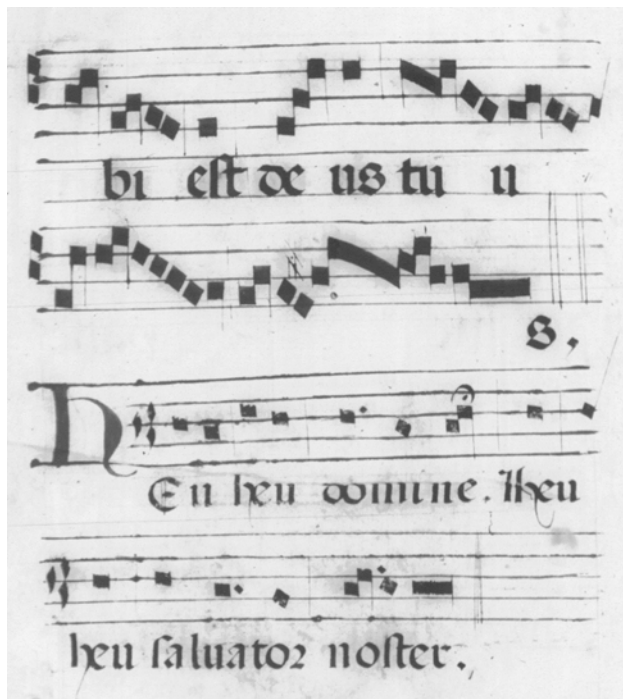 bi est de us tu u
s.
HEu heu domine. Heu
heu saluator noster.